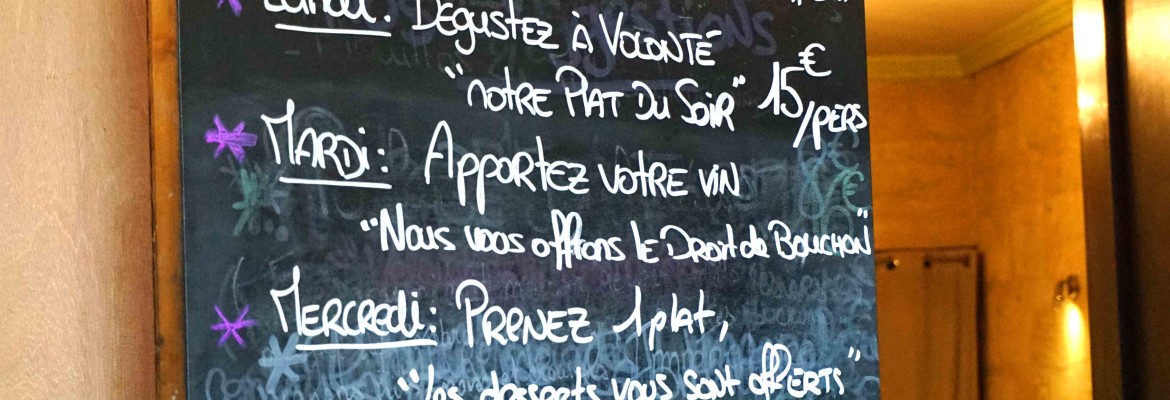 Lundi : Dégustez à Volonté
"notre Plat Du Soir" 15€/pers
Mardi : Apportez votre vin
"Nous vous offrons le Droit de Bouchon"
Mercredi : Prenez 1 plat,
"les desserts vous sont offerts"